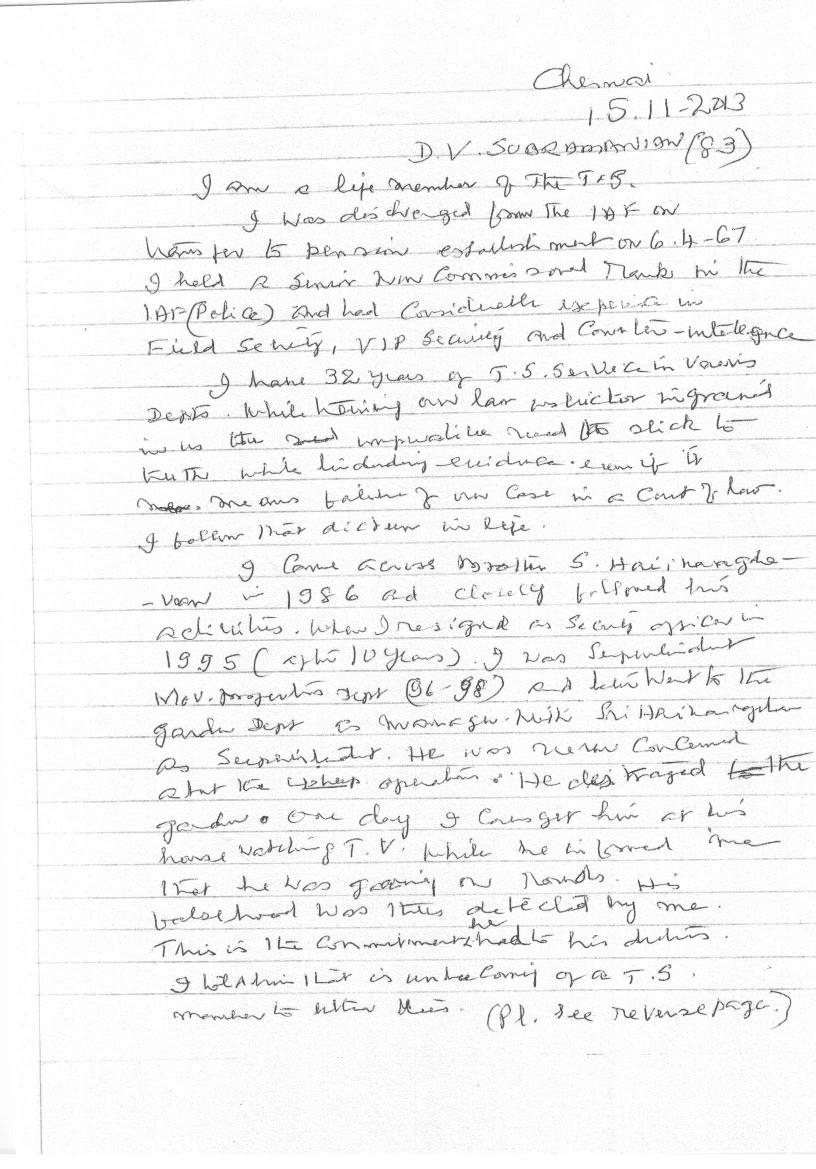 Chennai
15.11-2013
D.V. SUBRAMANIAN (83)
I am a life member of The T.S.
I was discharged from The IAF on
transfer to pension establishment on 6.4-67
I held a Senior Non Commissioned Rank in the
IAF (Police) and had Considerable experience in
Field Security, VIP Security and Counter-intelegence
I have 32 years of T.S. Service in Various
Depts. While training our law instructor ingrained
in us the imperative need to stick to
truth while tendering evidence even if it
means failure of our Case in a Court of law.
I follow that dictum in life.
I Came across Brother S. Harihara
-van in 1986 and closely followed his
activities. When I resigned as Security officer in
1995 (after 10 years). I was Superintendent
Mov. properties Dept (96-98) and later Went to the
garden Dept as Manager. With Sri
as Superintendent. He was never Concerned
about the operation. He destroyed the
garden. One day I Caught him at his
house watching T.V. while he informed me
that he was going on Rounds. His
falsehood was thus detected by me.
This is the Commitment he had to his duties.
I told him that is unbecoming of a T.S.
member to utter lies. (Pl. See reverse page.)